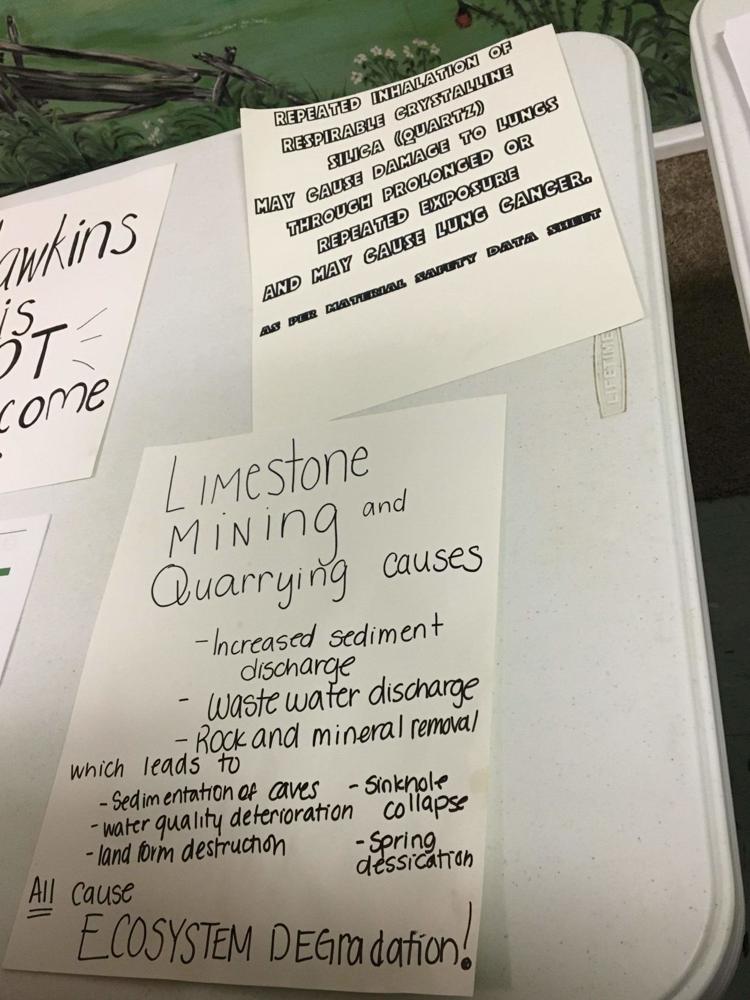 REPEATED INHALATION OF
RESPIRABLE CRYSTALLINE
SILICA (QUARTZ)
MAY CAUSE DAMAGE TO LUNGS
THROUGH PROLONGED OR
REPEATED EXPOSURE
AND MAY CAUSE LUNG CANCER.
AS PER MATERIAL SAFETY DATA SHEET
awkins
is
OT
come
LIFETIME
LIMEstone
MINING and
Quarrying causes
- Increased sediment
discharge
- Waste water discharge
- Rock and mineral removal
which leads to
- Sedimentation of caves
- water quality deterioration
- land form destruction
- Sinkhole
collapse
- Spring
dessication
All cause
ECOSYSTEM DEGradation!